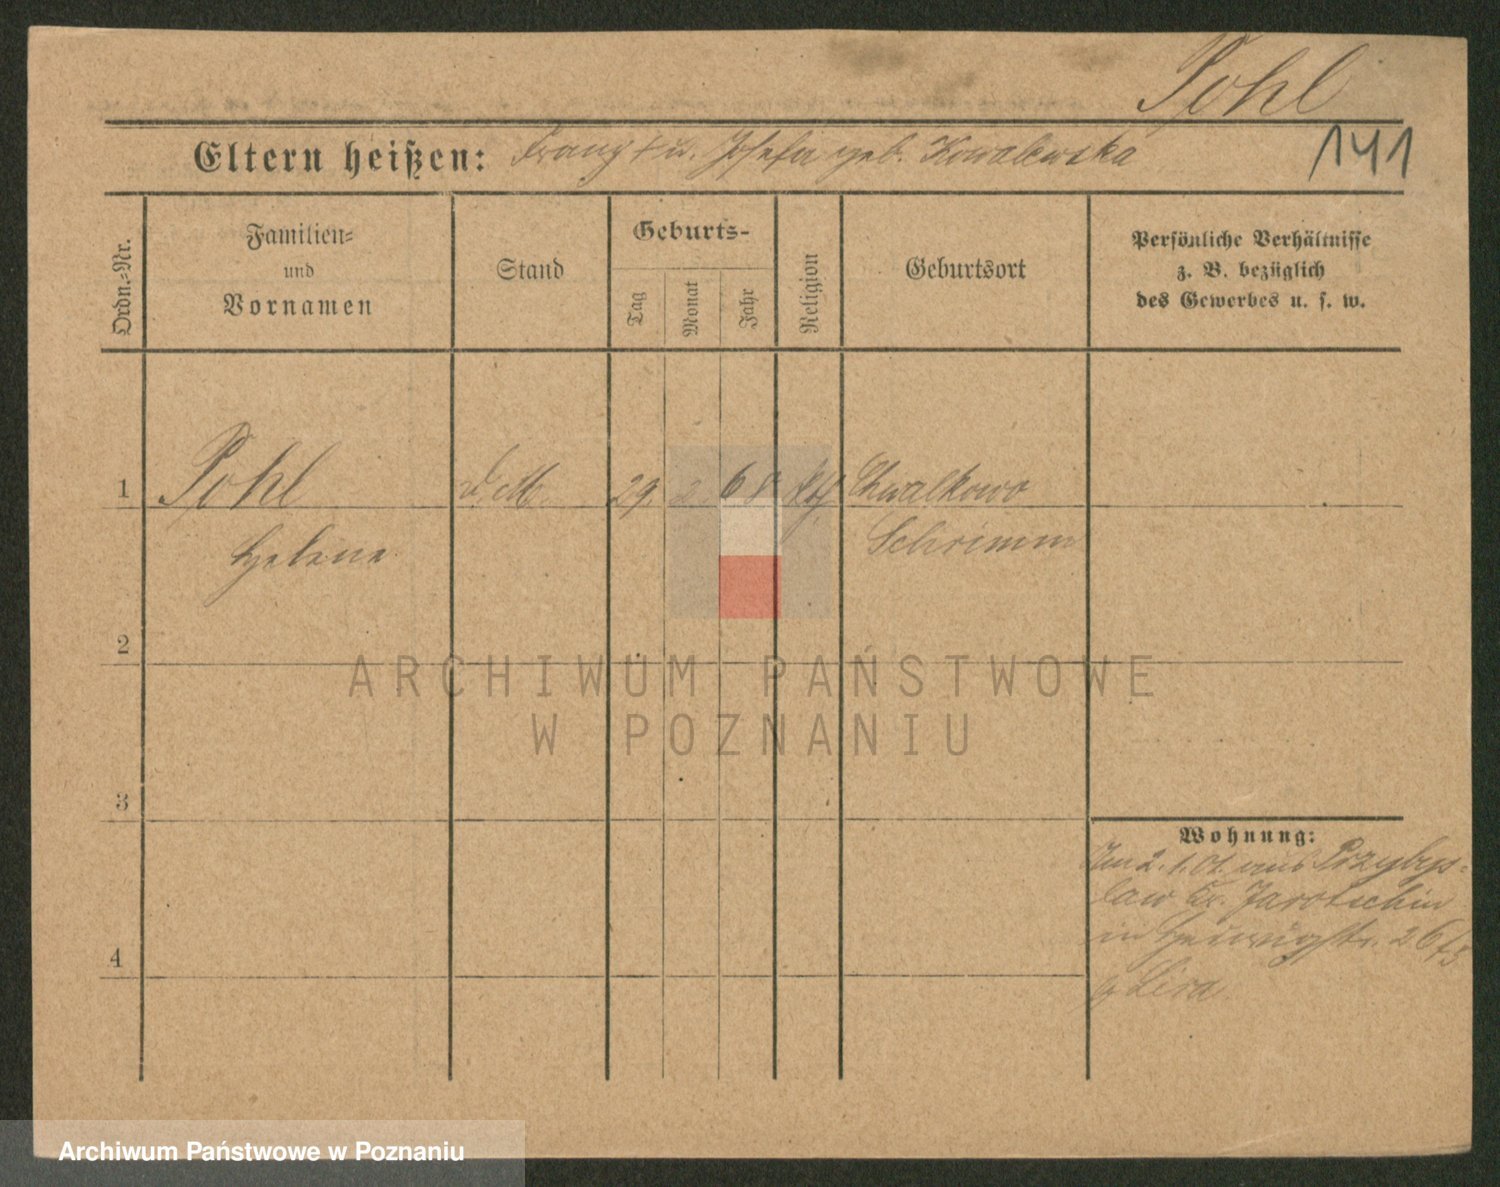 Pohl
141
Eltern heißen: Franz † u. Josefa geb. Kowalewska
Ordn.-Nr.
Familien-
und
Vornamen
Stand
Geburts-
Tag
Monat
Jahr
Religion
Geburtsort
Persönliche Verhältnisse
z. B. bezüglich
des Gewerbes u. s. w.
1 Pohl D. M. 29. 2 68 kth Chwalkowo
Helene Schrimm
2
3
4
Wohnung:
Am 2. 1. 01. aus Przybys-
law Kr. Jarotschin
in Hedwigstr. 26
b Lira
ARCHIWUM PAŃSTWOWE
W POZNANIU
Archiwum Państwowe w Poznaniu